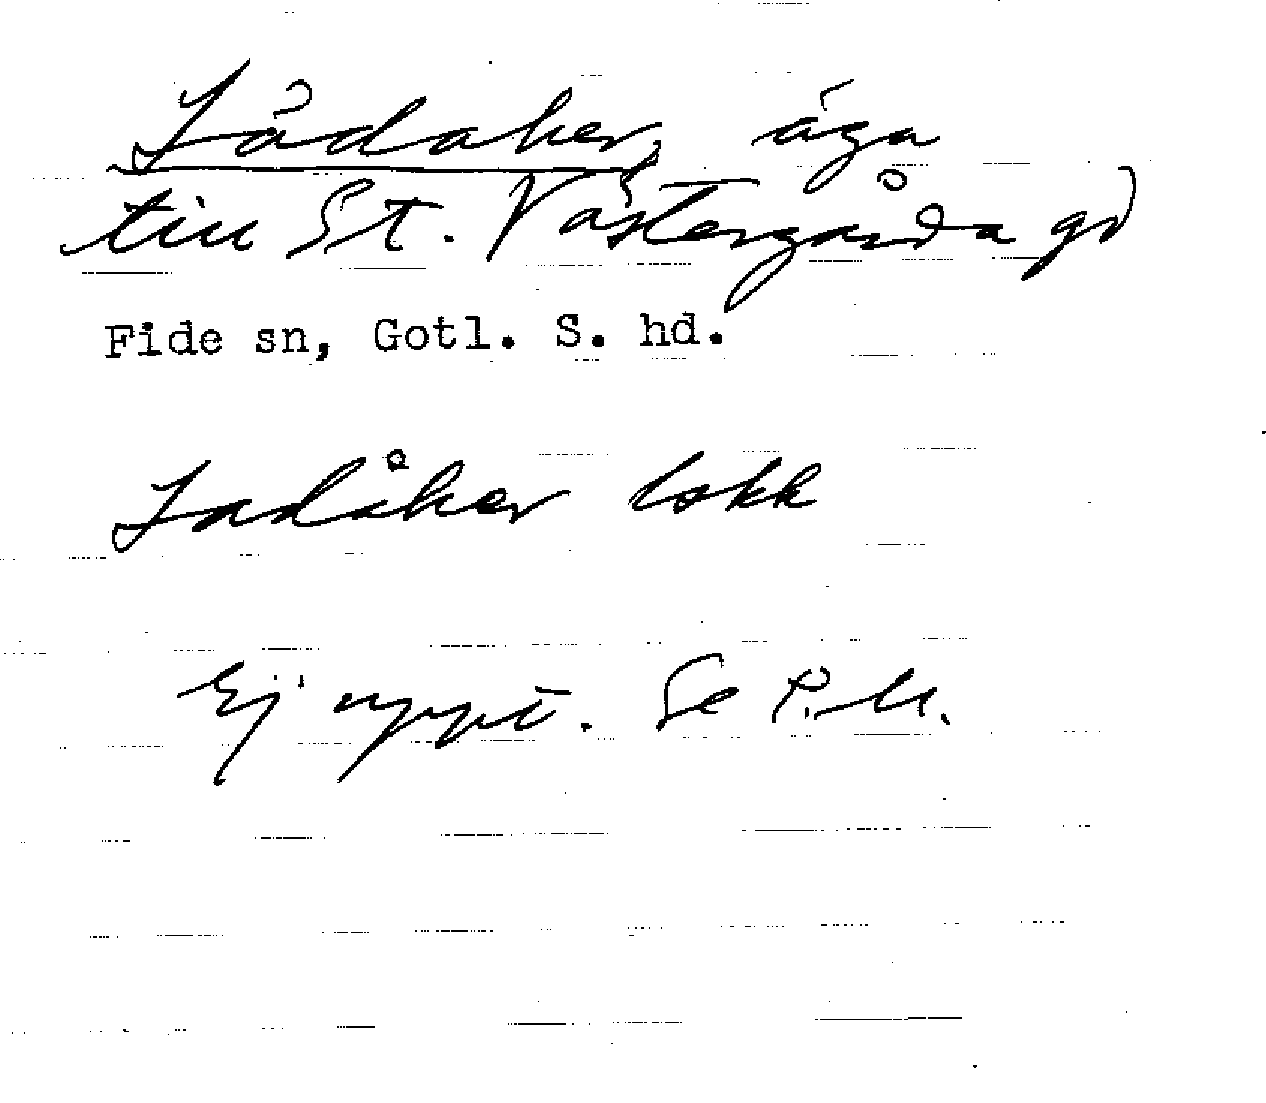 Lådaker, äga
till St. Västergårda gd
Fide sn, Gotl. S. hd.
Ladåker lskk
Ej uppt. Se P.M.